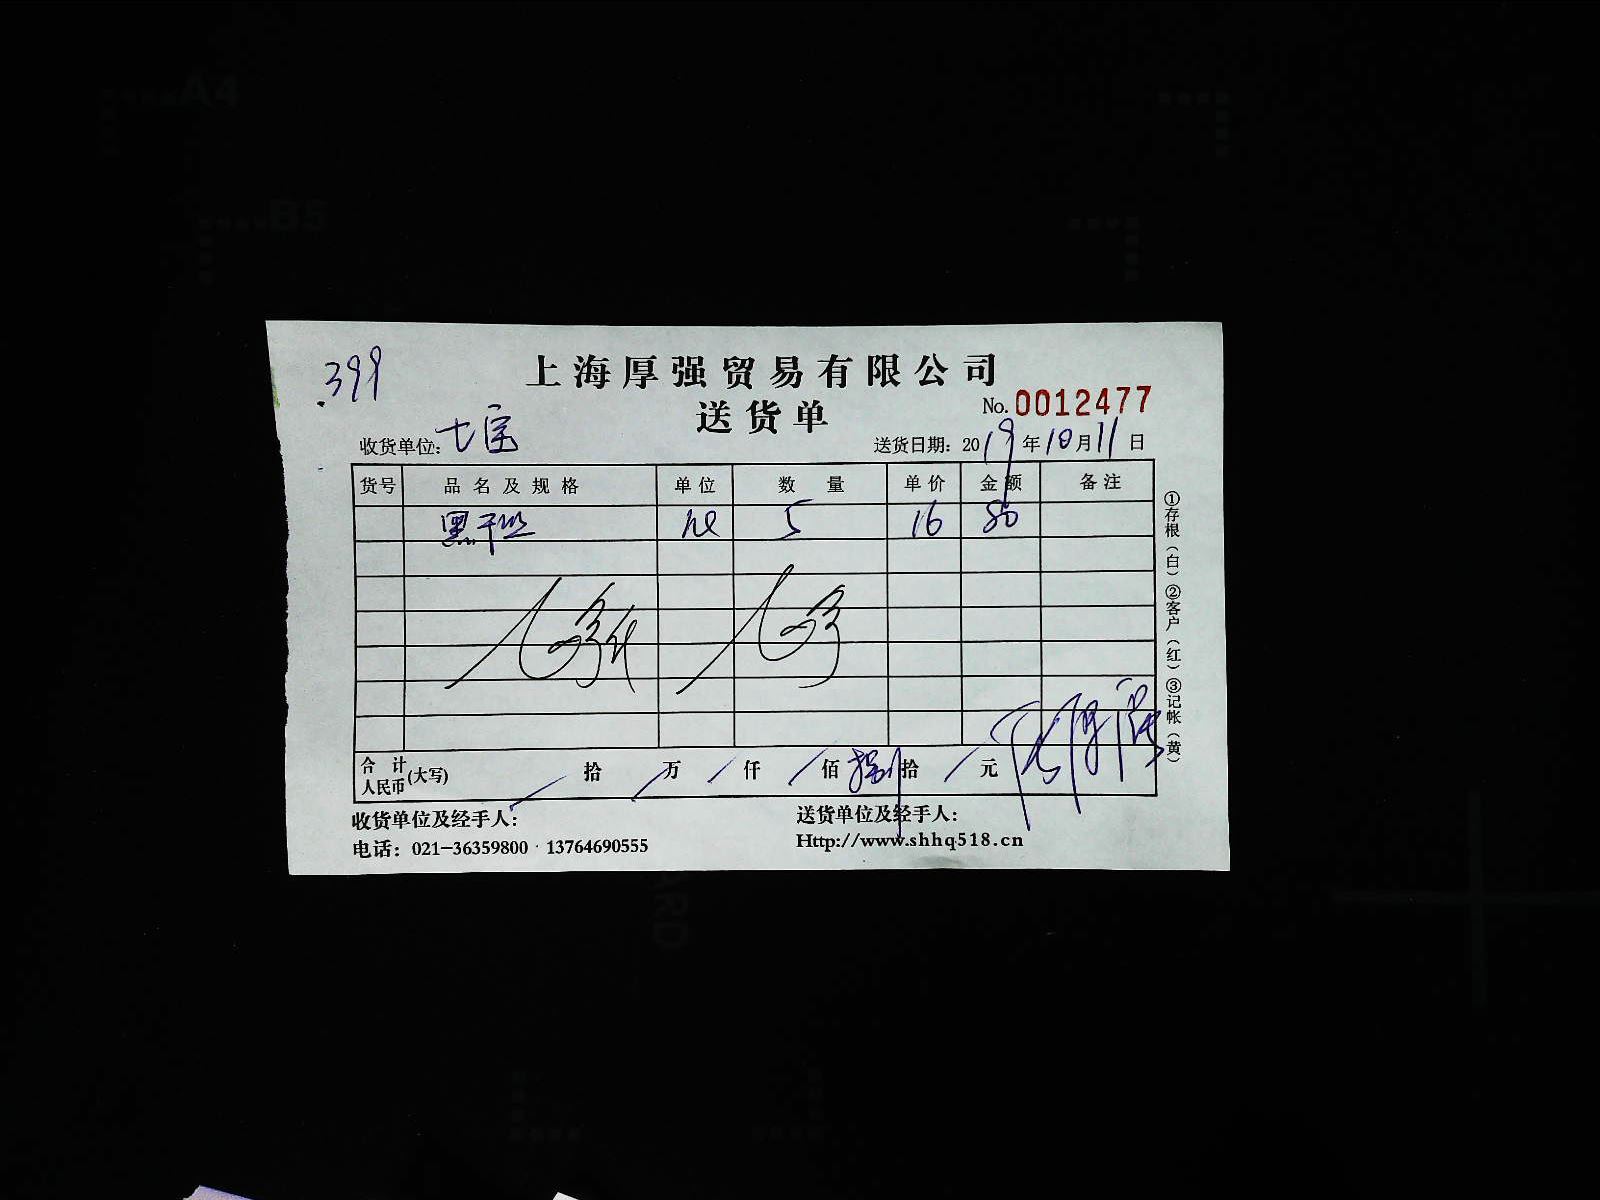 A4
B5
399
上海厚强贸易有限公司
送货单
No.0012477
收货单位：七宝
送货日期：2019年10月11日
货号 品名及规格 单位 数量 单价 金额 备注
黑干丝 5 16 80
合计人民币(大写) / 拾 / 万 / 仟 / 佰 捌 拾 / 元
收货单位及经手人：
送货单位及经手人：
电话：021-36359800 · 13764690555
Http://www.shhq518.cn
①存根(白) ②客户(红) ③记帐(黄)